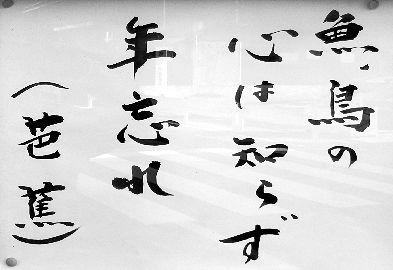 魚、鳥の
心は知らず
年忘れ
（芭蕉）